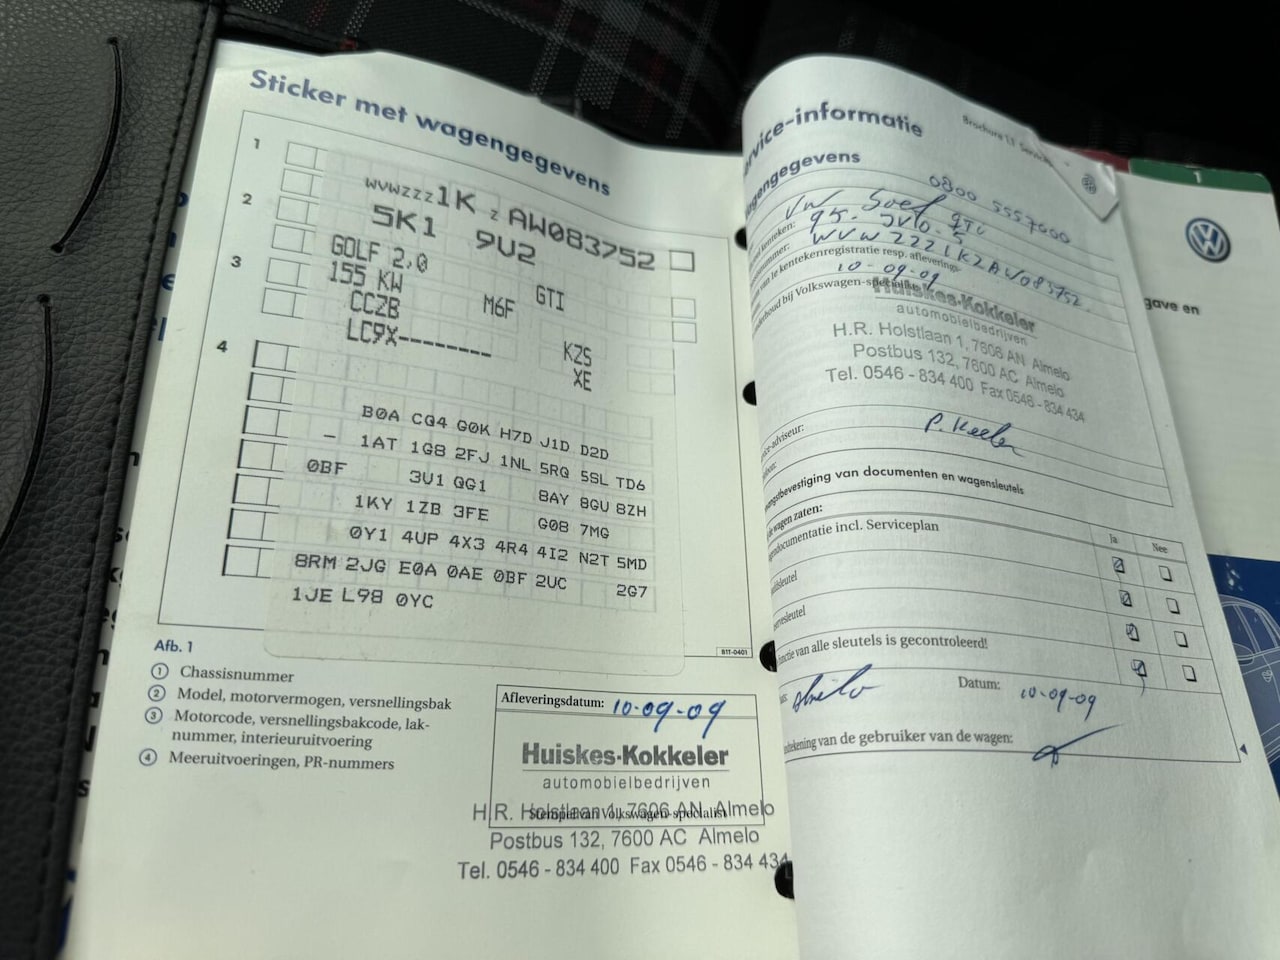 Sticker met wagengegevens
1
2
3
4
WVWZZZ1K Z AW083752
5K1 9U2
GOLF 2,0 GTI
155 KW M6F
CCZB KZS
LC9X-------- XE
B0A CQ4 G0K H7D J1D D2D
– 1AT 1G8 2FJ 1NL 5RQ 5SL TD6
0BF 3U1 QG1 8AY 8GU 8ZH
1KY 1ZB 3FE G08 7MG
0Y1 4UP 4X3 4R4 4I2 N2T 5MD
8RM 2JG E0A 0AE 0BF 2UC 2G7
1JE L98 0YC
B11-0401
Afb. 1
1 Chassisnummer
2 Model, motorvermogen, versnellingsbak
3 Motorcode, versnellingsbakcode, lak-
nummer, interieuruitvoering
4 Meeruitvoeringen, PR-nummers
Afleveringsdatum: 10-09-09
Huiskes-Kokkeler
automobielbedrijven
H.R. Holstlaan 1, 7606 AN Almelo
Stempel van Volkswagen-specialist
Postbus 132, 7600 AC Almelo
Tel. 0546 - 834 400 Fax 0546 - 834 434
rvice-informatie
Brochure 1.1 Service
agengegevens
0800 5557000
VW Golf GTI
kenteken:
nummer: WVWZZZ1KZAW083752
van 1e kentekenregistratie resp. aflevering:
10-09-09
derhoud bij Volkswagen-specialist
Huiskes-Kokkeler
automobielbedrijven
H.R. Holstlaan 1, 7606 AN Almelo
Postbus 132, 7600 AC Almelo
Tel. 0546 - 834 400 Fax 0546 - 834 434
ce-adviseur:
ngstbevestiging van documenten en wagensleutels
de wagen zaten:
Ja Nee
gendocumentatie incl. Serviceplan
sleutel
ervesleutel
unctie van alle sleutels is gecontroleerd!
Almelo Datum: 10-09-09
ndtekening van de gebruiker van de wagen:
1
gave en